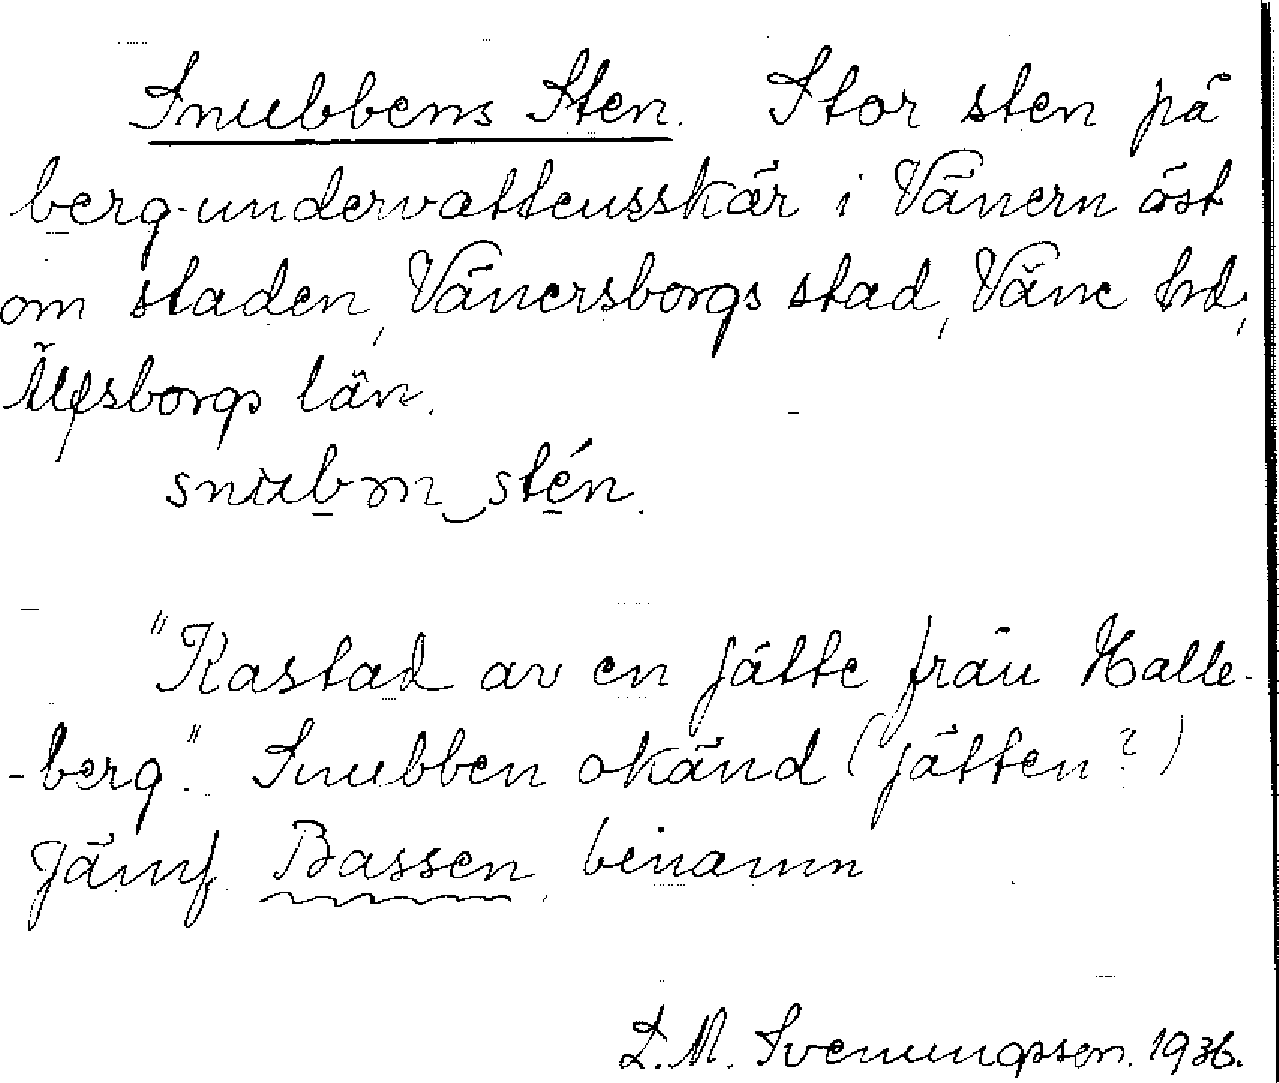 Snubbens Sten. Stor sten på
berg-undervattensskär i Vänern öst
om staden, Vänersborgs stad, Väne hd,
Älfsborgs län.
snub̲m̥‿stén.
"Kastad av en jätte från Halle-
-berg." Snubben okänd (jätten?)
Jämf. Bassen, binamn
L.M. Svenungsson. 1936.